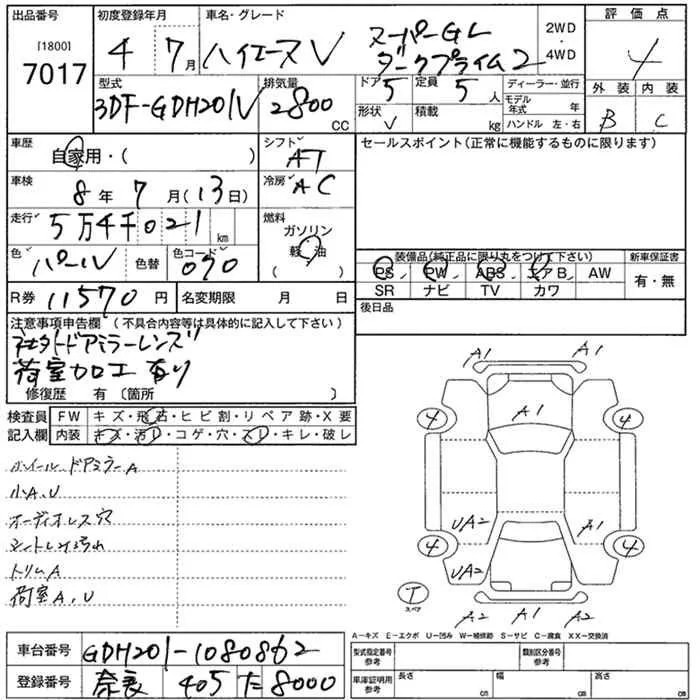 出品番号
[1800]
7017
初度登録年月
4 7月
車名・グレード
ハイエースV スーパーGL
ダークプライム2
2WD
・
4WD
評価点
4
外装 内装
B C
型式
3DF-GDH201V
排気量
2800
CC
ドア 5
定員 5 人
形状 V
積載 kg
ディーラー・並行
モデル年式 年
ハンドル 左・右
車歴
自家用・( )
シフト AT
車検
8年 7月(13日)
冷房 AC
走行
5万4千021 km
燃料
ガソリン
軽油
( )
色 パール 色替
色コード 070
R券 11570円
名変期限 月 日
セールスポイント(正常に機能するものに限ります)
装備品(純正品に限り丸をつけて下さい)
新車保証書
PS PW ABS エアB AW
有・無
SR ナビ TV カワ
後日品
注意事項申告欄(不具合内容等は具体的に記入して下さい)
社外ドアミラーレンズ
荷室加工有り
修復歴 有 〔箇所 〕
検査員 FW キズ・飛石・ヒビ割・リペア跡・X要
記入欄 内装 キズ・汚れ・コゲ・穴・スレ・キレ・破レ
ホイール ドアミラーA
小A、U
オーディオレス穴
シート
トリムA
荷室A、U
A1
A1
A1
4
4
UA2
A1
4
4
UA2
T
スペア
A2 A1 A2
A-キズ E-エクボ U-凹み W-補修跡 S-サビ C-腐食 XX-交換済
車台番号 GDH201-1080862
登録番号 奈良 405 た 8000
型式指定番号
参考
類別区分番号
参考
車庫証明用
参考
長さ cm
幅 cm
高さ cm